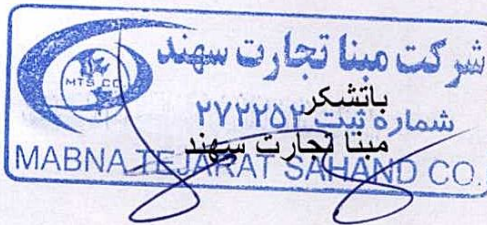 شرکت مبنا تجارت سهند
MTS CO
باتشکر
شماره ثبت ۲۷۲۲۵۲
مبنا تجارت سهند
MABNA TEJARAT SAHAND CO.